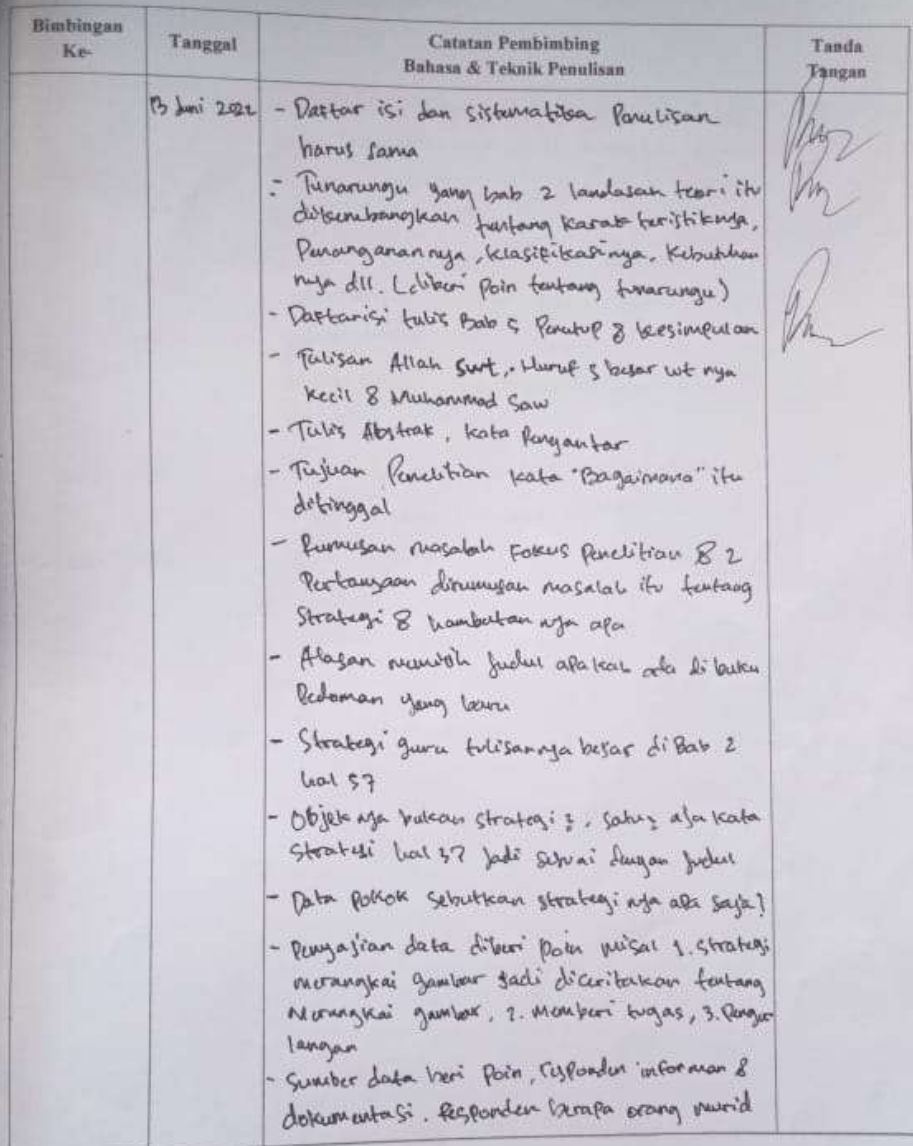 Bimbingan Ke-
Tanggal
Catatan Pembimbing
Bahasa & Teknik Penulisan
Tanda Tangan
13 Juni 2022
- Daftar isi dan sistematika Penulisan
harus sama
- Tunarungu yang bab 2 landasan teori itu
dikembangkan tentang karakteristiknya,
Penanganannya, klasifikasinya, kebutuhan
nya dll. (diberi poin tentang tunarungu)
- Daftar isi tulis Bab 5 Penutup & kesimpulan
- Tulisan Allah Swt, . Huruf S besar wt nya
kecil & Muhammad Saw
- Tulis Abstrak, kata Pengantar
- Tujuan Penelitian kata "Bagaimana" itu
ditinggal
- Rumusan masalah Fokus Penelitian & 2
Pertanyaan dirumusan masalah itu tentang
Strategi & hambatan nya apa
- Alasan memilih judul apakah ada di buku
Pedoman yang baru
- Strategi guru tulisannya besar di Bab 2
hal 37
- Objek nya bukan strategi2, satu2 aja kata
Strategi hal 37 Jadi sesuai dengan judul
- Data Pokok sebutkan strategi nya apa saja?
- Penyajian data diberi poin misal 1. Strategi
merangkai gambar jadi diceritakan tentang
Merangkai gambar, 2. Memberi tugas, 3. Pengu
langan
- Sumber data beri Poin, responden informan &
dokumentasi. Responden berapa orang murid